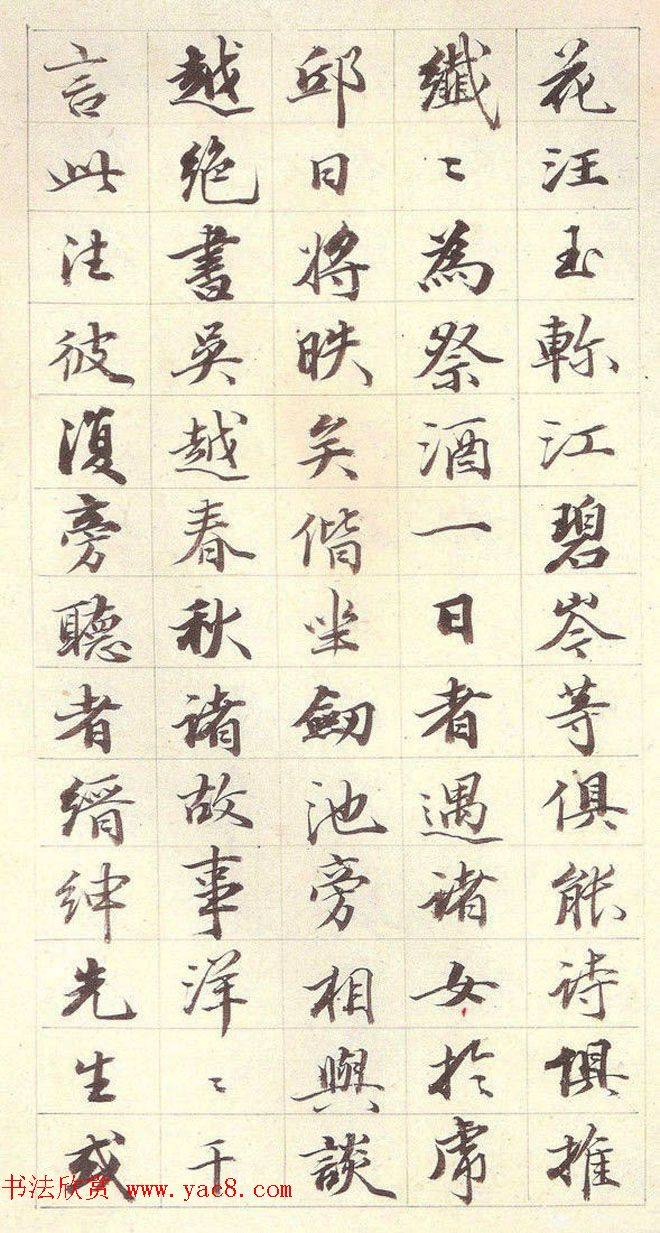 花汪玉軫江碧岑等俱能詩俱推
纖〻為祭酒一日者遇諸女於虎
邱日將昳矣偕坐劔池旁相與談
越絕書吳越春秋諸故事洋〻千
言此往彼復旁聽者縉紳先生或
书法欣赏 www.yac8.com